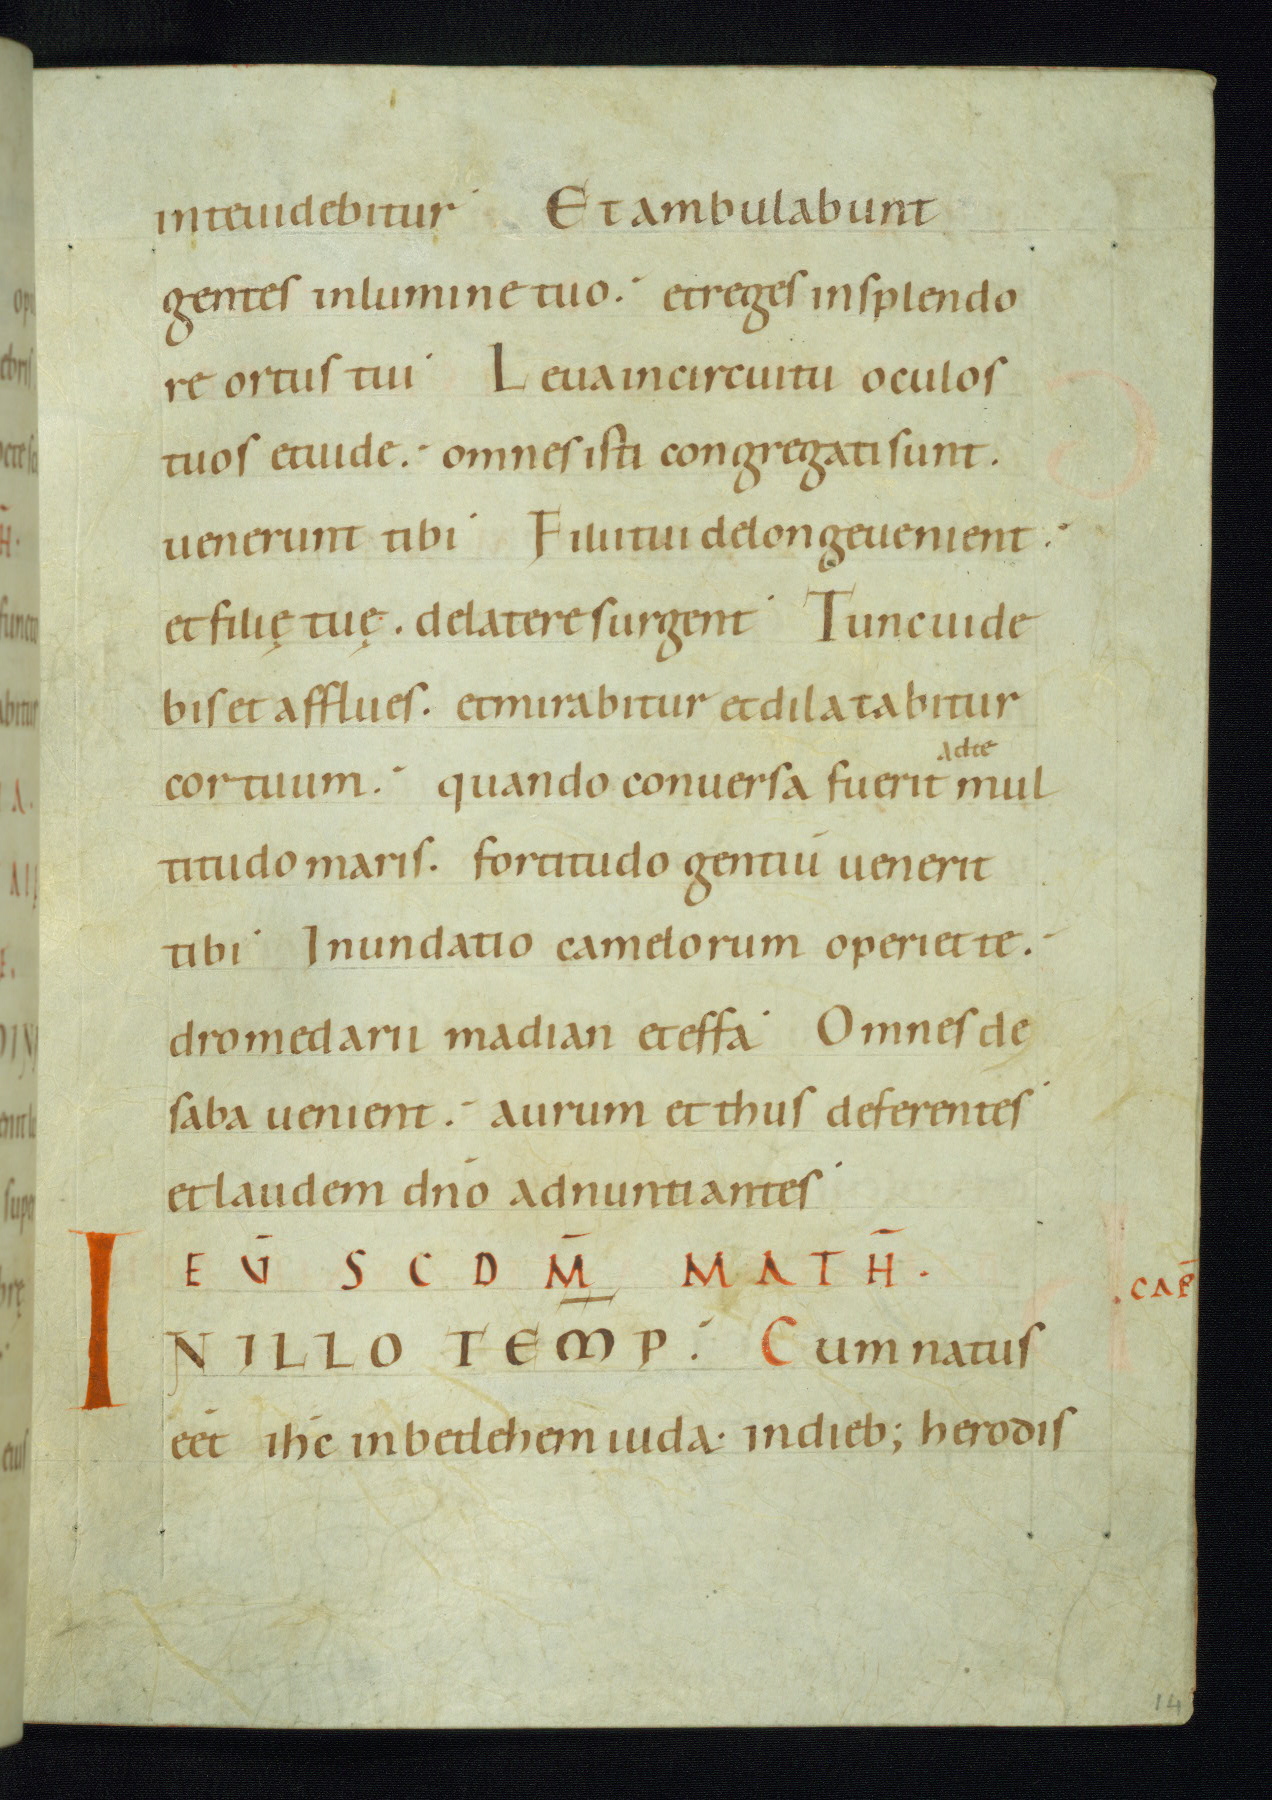 in te uidebitur· Et ambulabunt
gentes in lumine tuo.· et reges in splendo
re ortus tui· Leua in circuitu oculos
tuos et uide.· omnes isti congregati sunt.
uenerunt tibi· Filii tui de longe uenient.·
et filię tuę. de latere surgent· Tunc uide
bis et afflues. et mirabitur et dilatabitur
ad te
cor tuum.· quando conuersa fuerit mul
titudo maris. fortitudo gentiū uenerit
tibi· Inundatio camelorum operiet te.·
dromedarii madian et effa· Omnes de
saba uenient.· aurum et thus deferentes·
et laudem dn̄o adnuntiantes·
EŪ SCDM̄ MATH̄.
.CAP̄
INILLO TEM̄P.· Cum natus
eēt ih̄c in betlehem iuda· in dieb; herodis
14